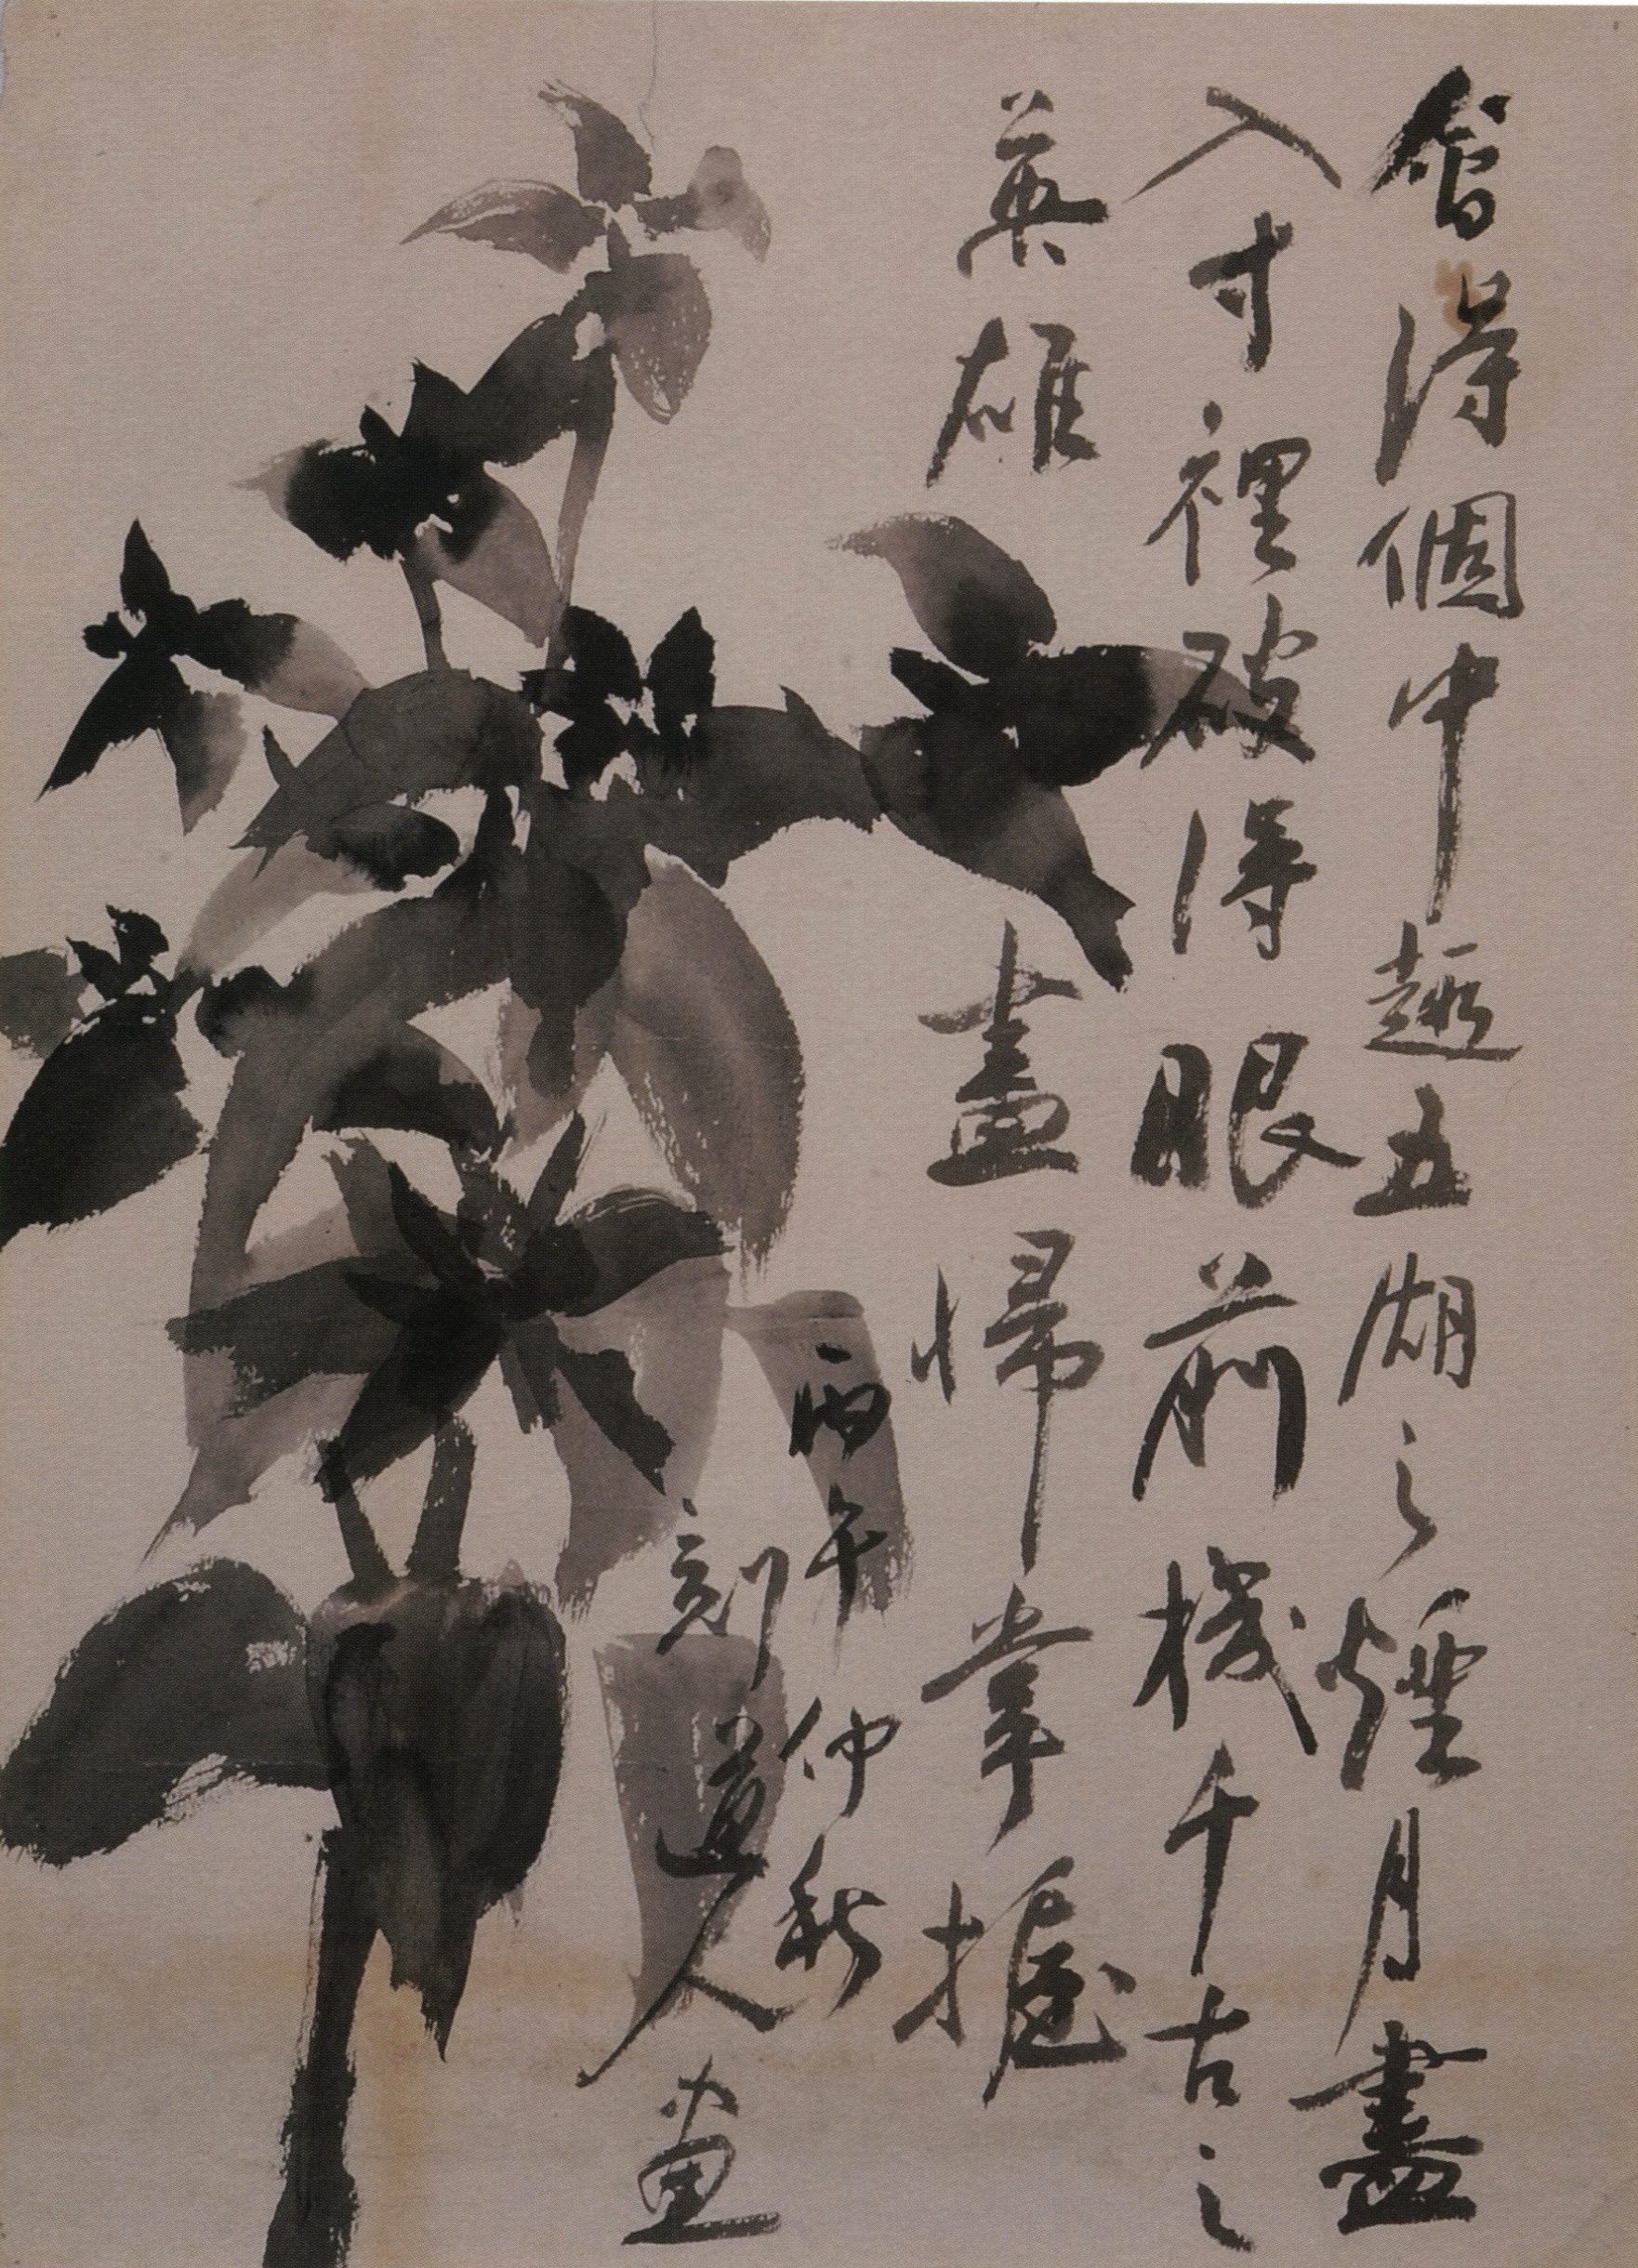 會得個中趣五湖之煙月盡
入寸裡破得眼前機千古之
英雄盡歸掌握
丙午仲秋
刻道人画